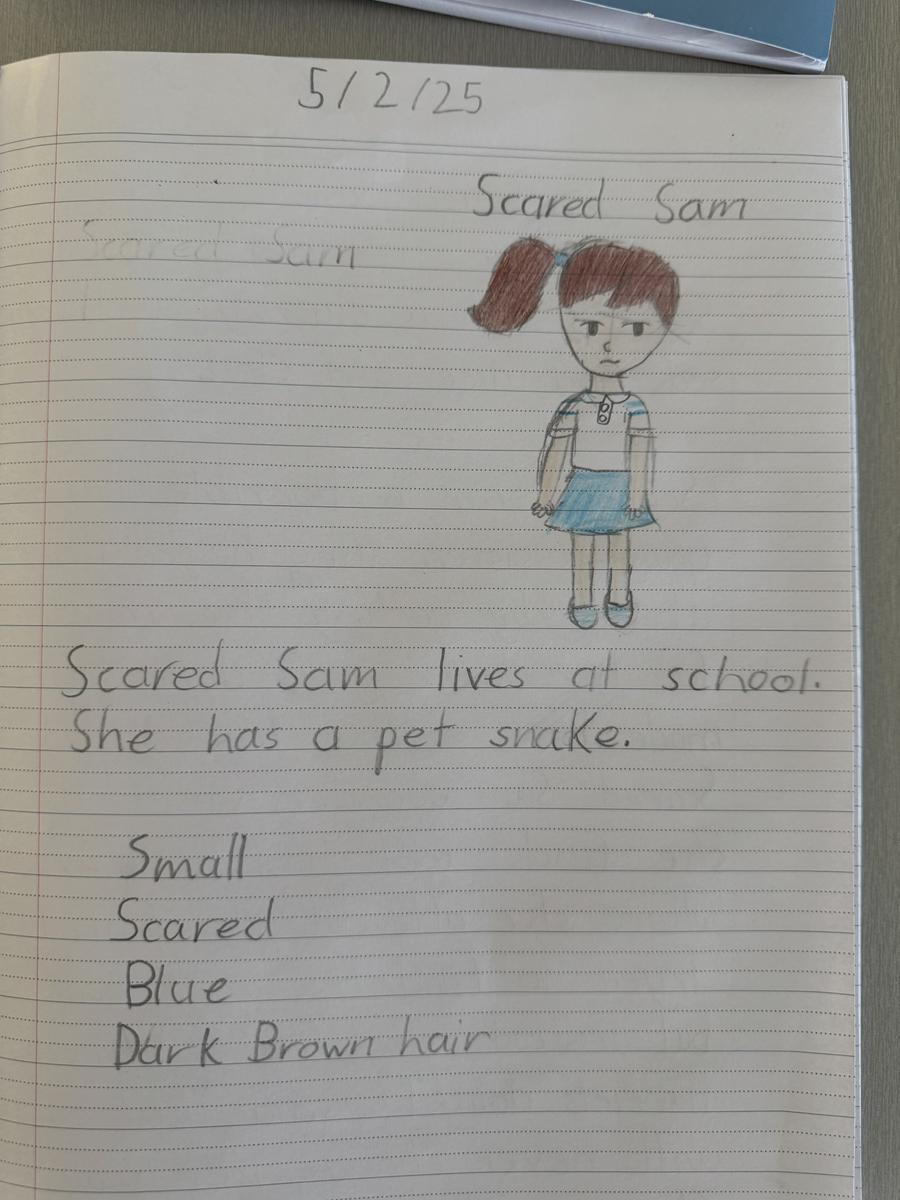 5/2/25
Scared Sam
Scared Sam
Scared Sam lives at school.
She has a pet snake.
Small
Scared
Blue
Dark Brown hair